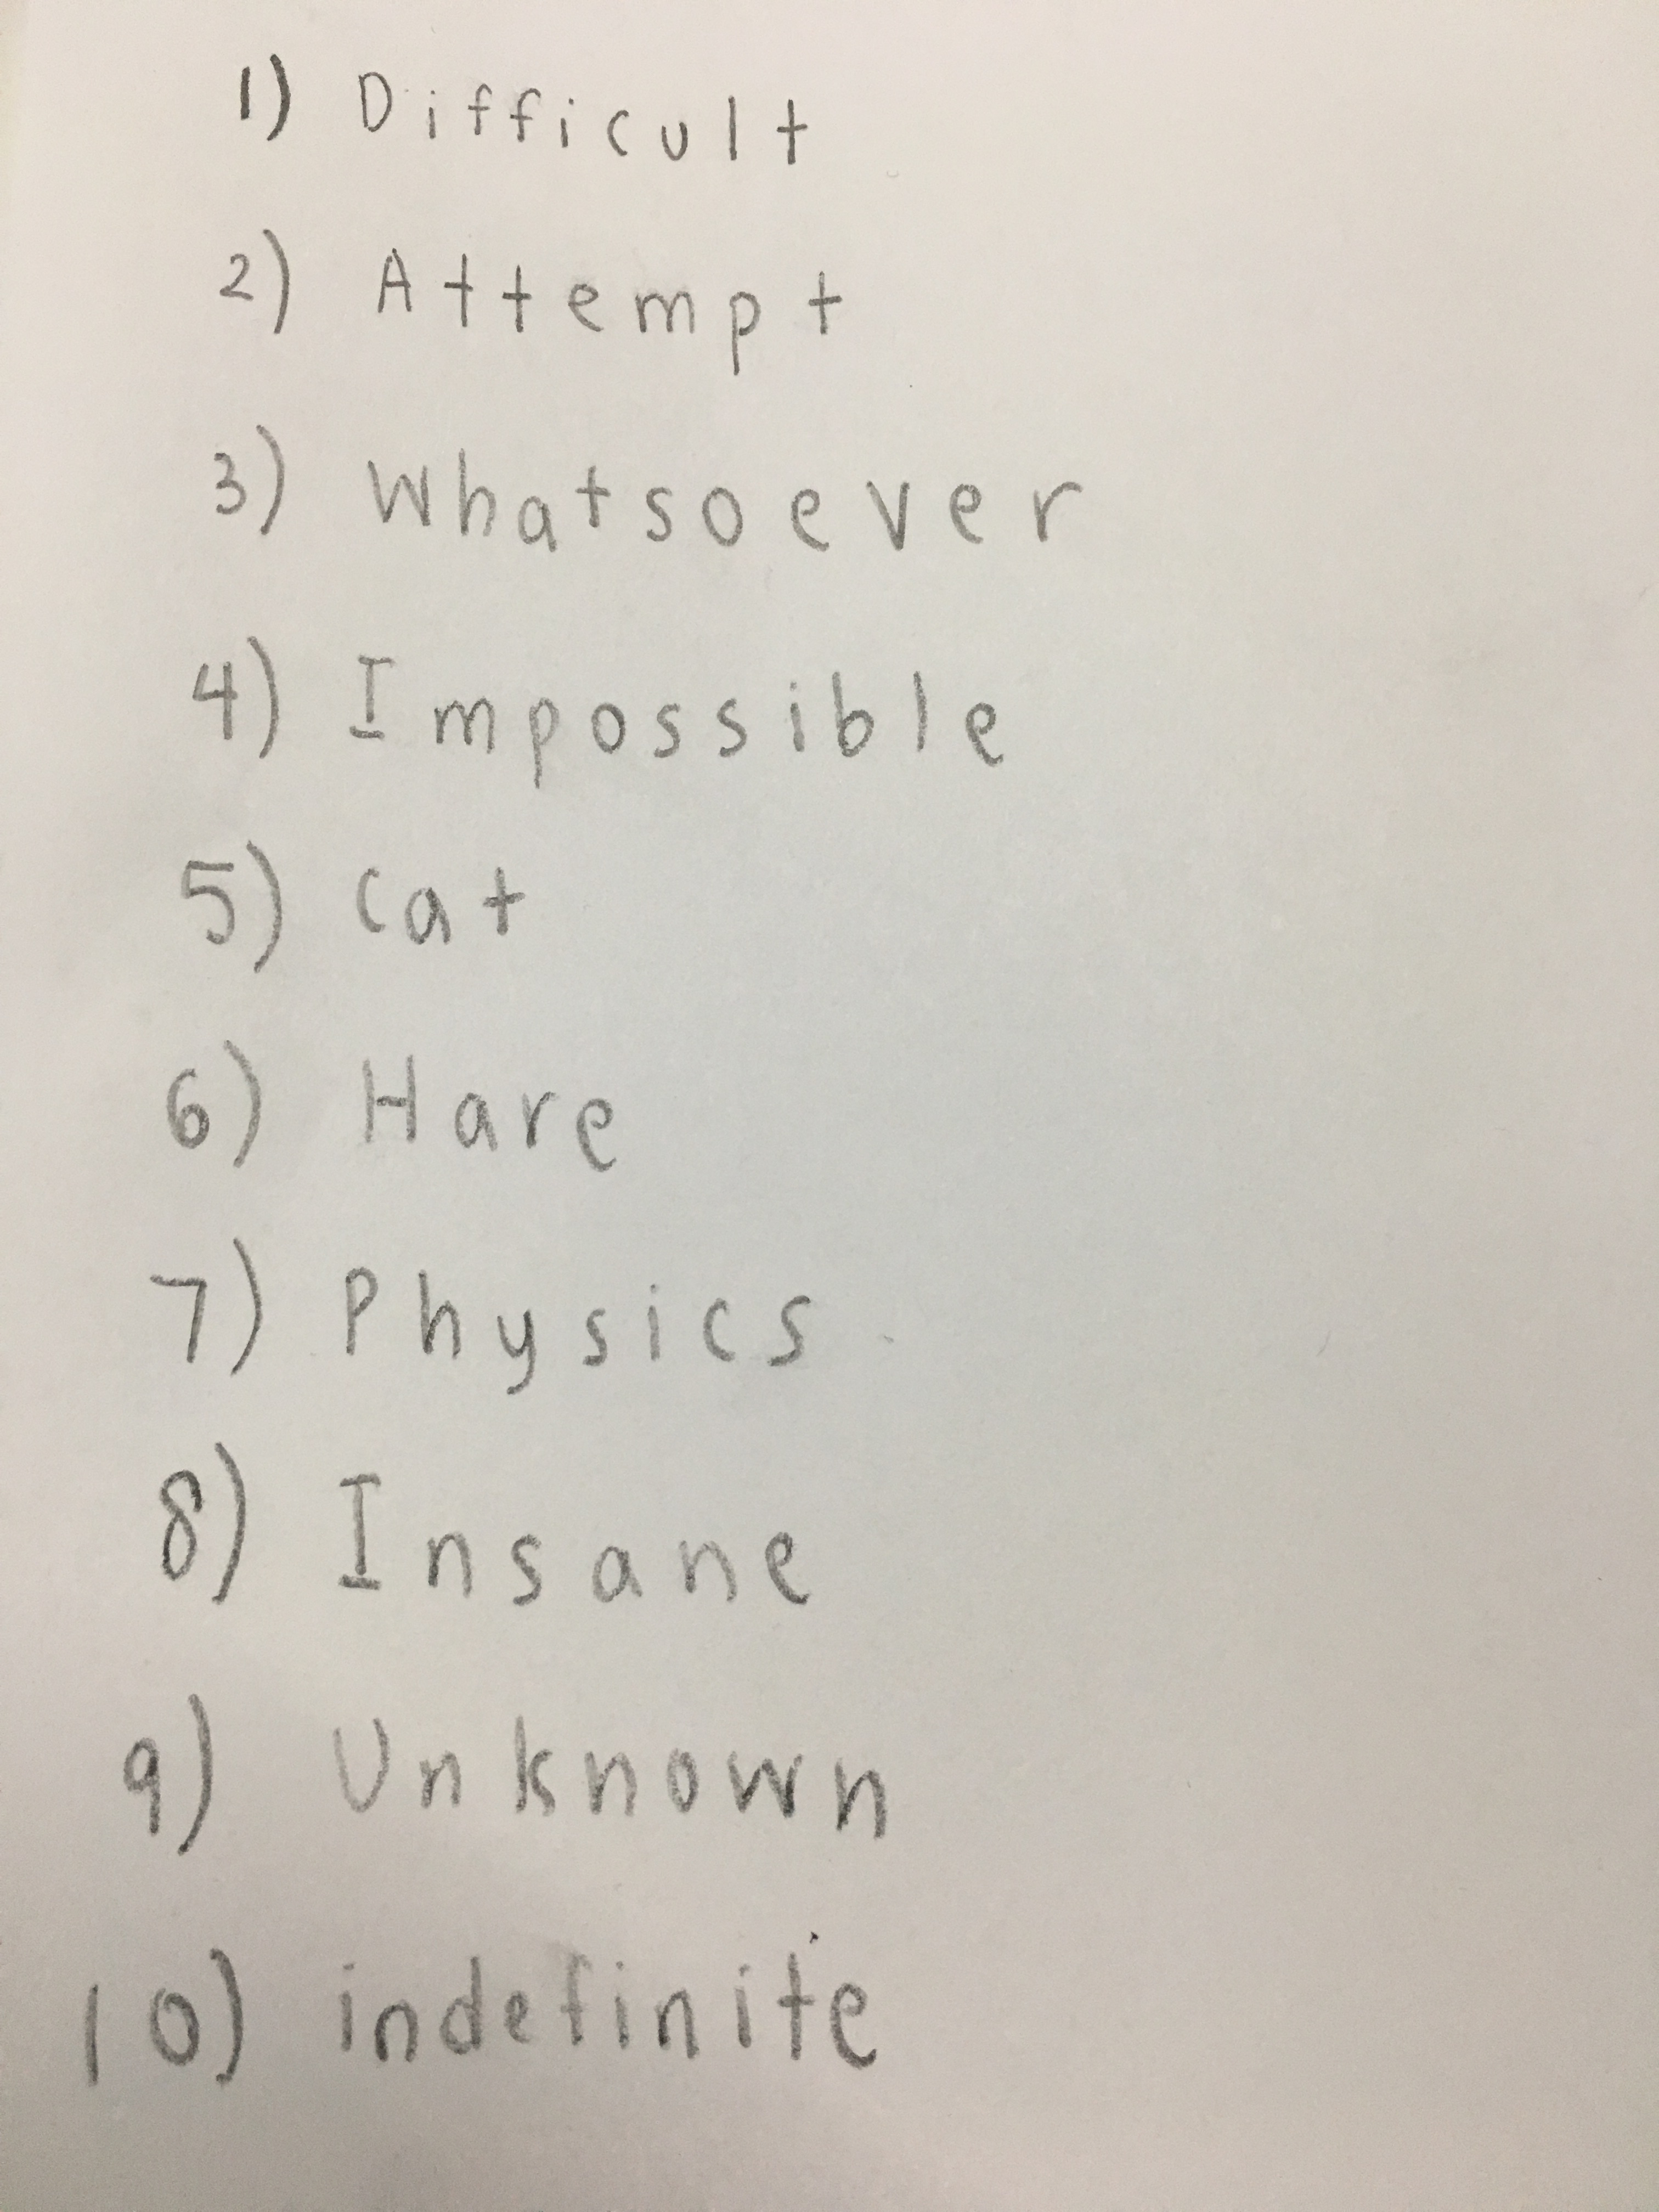 1) Difficult
2) Attempt
3) Whatsoever
4) Impossible
5) Cat
6) Hare
7) Physics
8) Insane
9) Unknown
10) indefinite